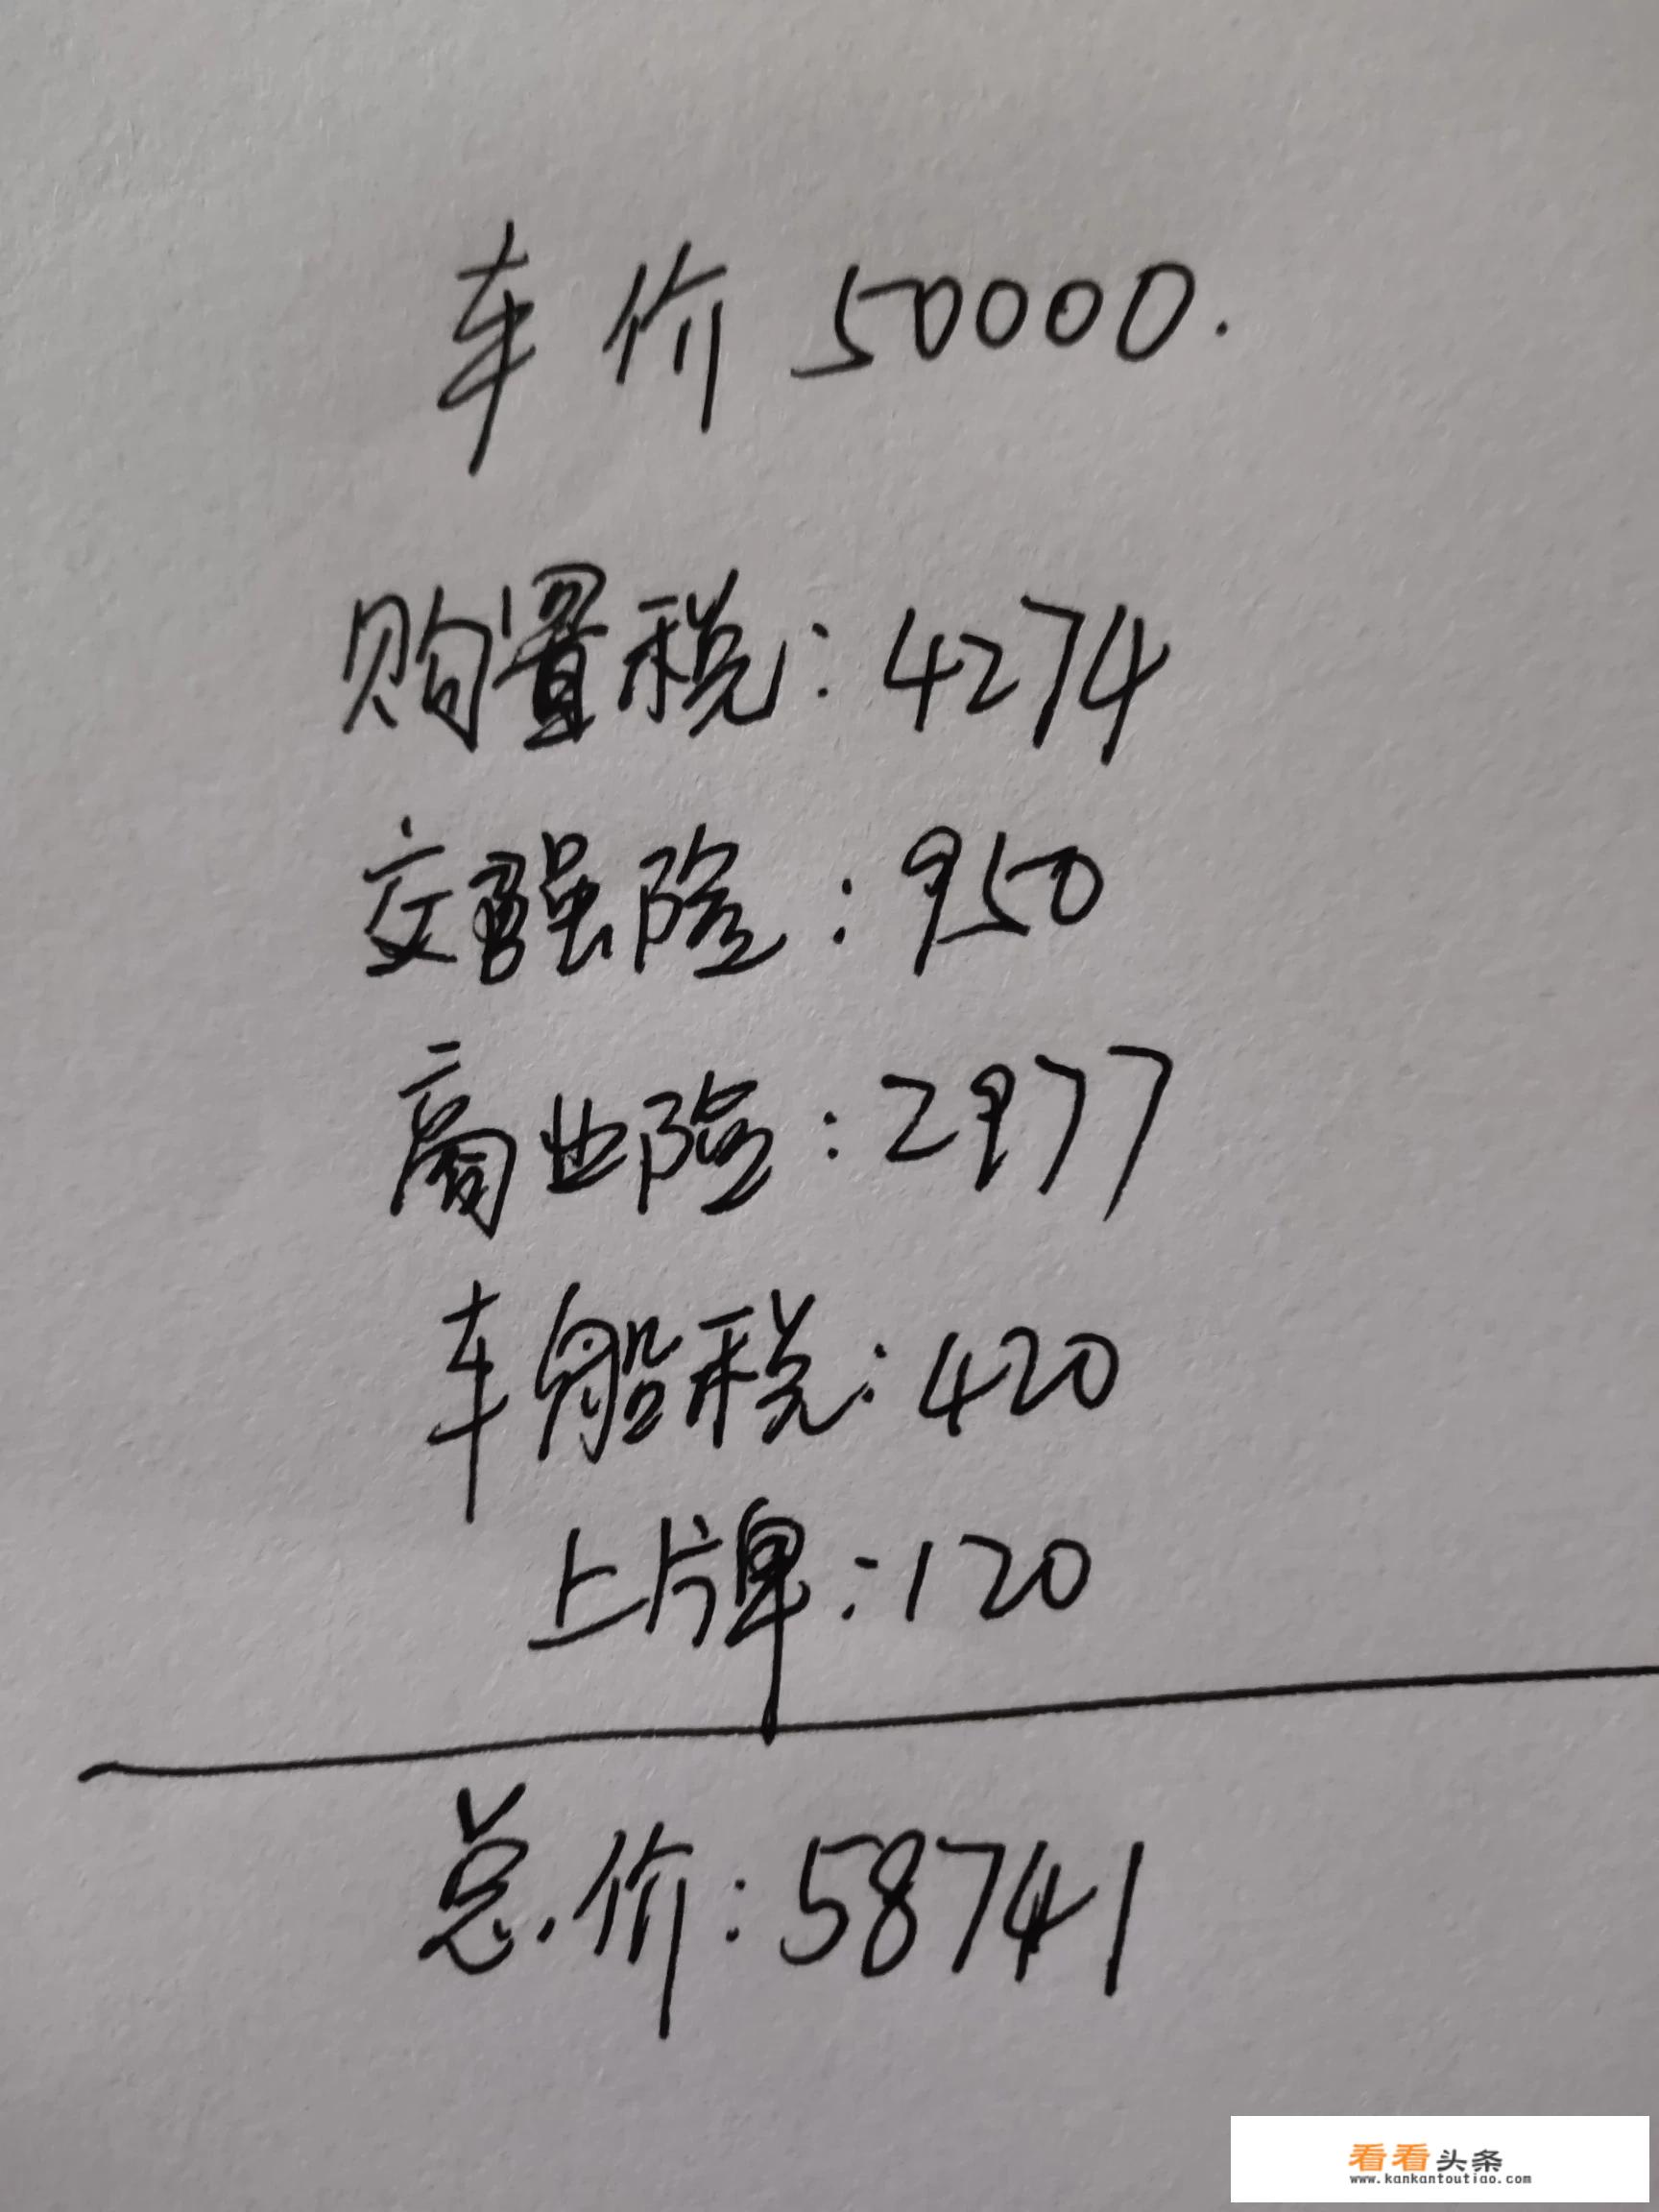 车价 50000.
购置税:4274
交强险:950
商业险:2977
车船税:420
上牌:120
总价:58741
看看头条
www.kankantoutiao.com